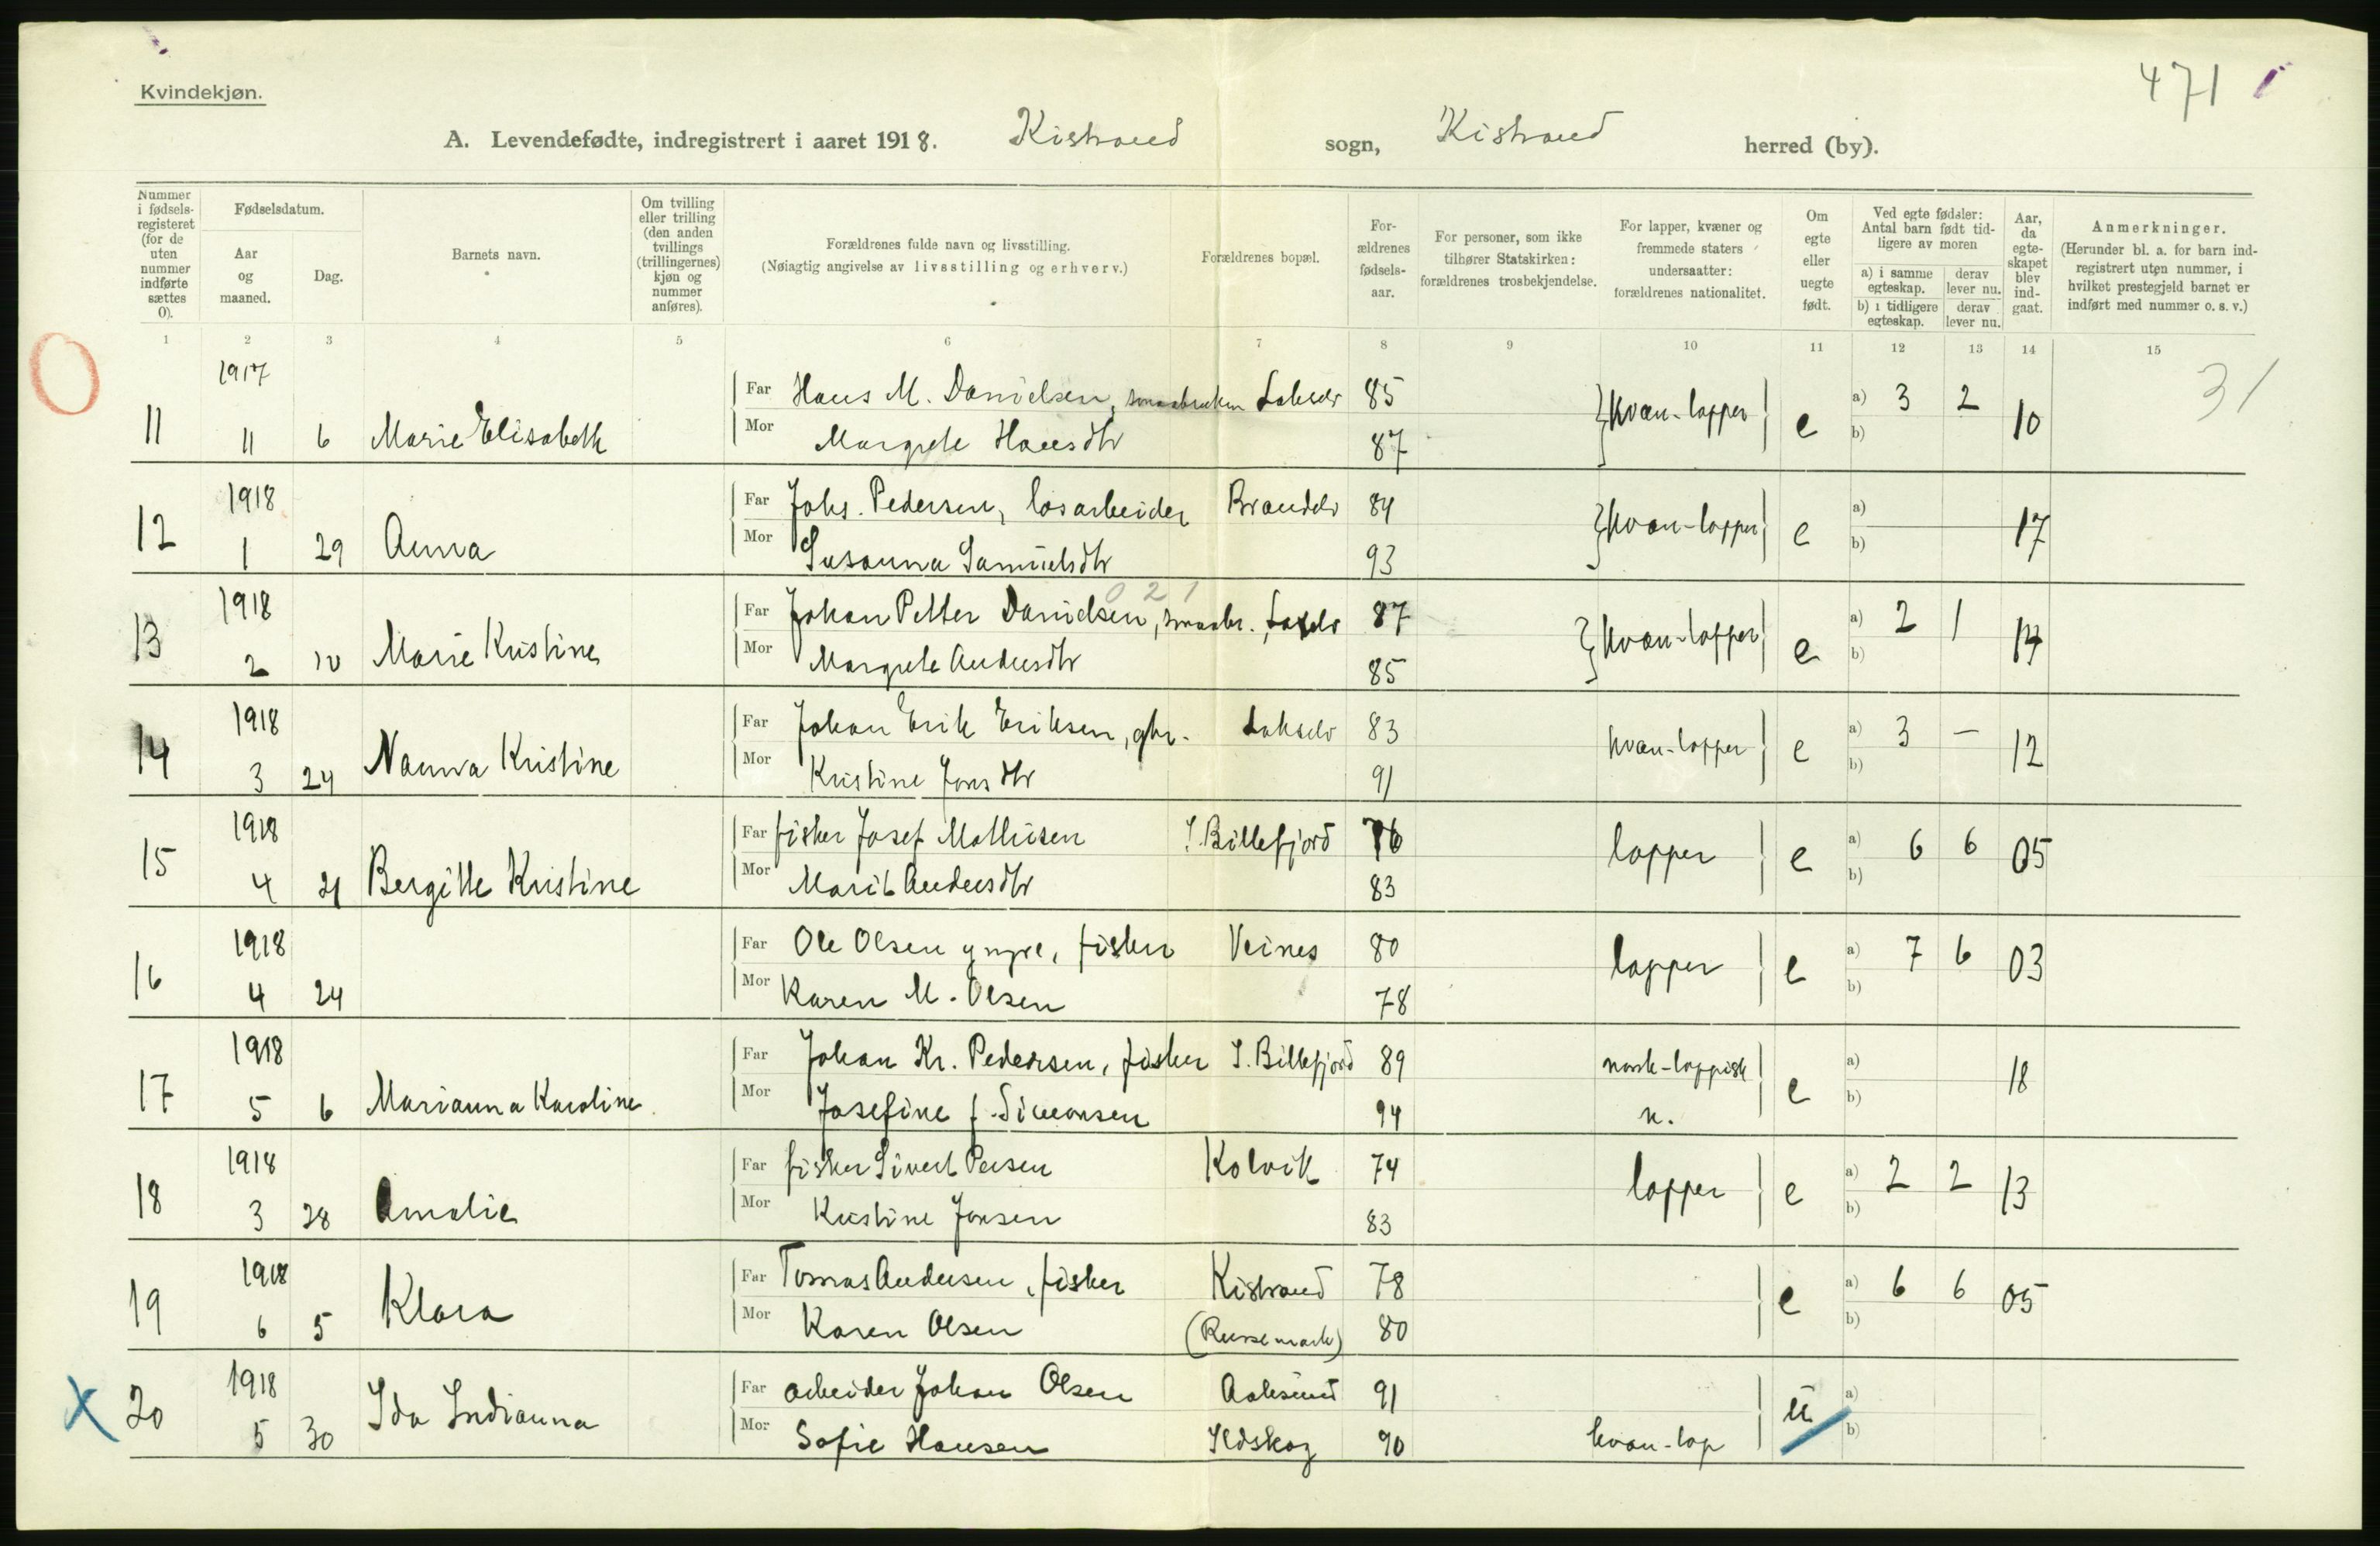 471
Kvindekjøn.
A. Levendefødte, indregistrert i aaret 1918. Kistrand sogn, Kistrand herred (by).
Nummer i fødsels-registeret (for de uten nummer indførte sættes 0).
Fødselsdatum.
Aar og maaned.
Dag.
Barnets navn.
Om tvilling eller trilling (den anden tvillings (trillingernes) kjøn og nummer anføres).
Forældrenes fulde navn og livsstilling.
(Nøiagtig angivelse av livsstilling og erhverv.)
Forældrenes bopæl.
For-ældrenes fødsels-aar.
For personer, som ikke tilhører Statskirken: forældrenes trosbekjendelse.
For lapper, kvæner og fremmede staters undersaatter: forældrenes nationalitet.
Om egte eller uegte født.
Ved egte fødsler: Antal barn født tid-ligere av moren
a) i samme egteskap.
derav lever nu.
b) i tidligere egteskap.
derav lever nu.
Aar, da egte-skapet blev ind-gaat.
Anmerkninger.
(Herunder bl. a. for barn ind-registrert uten nummer, i hvilket prestegjeld barnet er indført med nummer o. s. v.)
1 2 3 4 5 6 7 8 9 10 11 12 13 14 15
1917
Far Hans M. Danielsen, smaabruker Lakselv 85 kvæn-lapper e a) 3 2 10 31
11 11 6 Marie Elisabeth Mor Margrete Hansdtr 87 b)
1918
Far Johs. Pedersen, løsarbeider Brandelv 84 kvæn-lapper e a) 17
12 1 29 Anna Mor Susanna Samuelsdtr 93 b)
021
1918
Far Johan Petter Danielsen, smaabr., Lakselv 87 kvæn-lapper e a) 2 1
13 2 10 Marie Kristine Mor Margrete Andersdtr 85 b)
1918
Far Johan Erik Eriksen, gbr. Lakselv 83 kvæn-lapper e a) 3 — 12
14 3 24 Nanna Kristine Mor Kristine Jonsdtr 91 b)
1918
Far fisker Josef Mathisen S. Billefjord 76 lapper e a) 6 6 05
15 4 21 Bergitte Kristine Mor Marit Andersdtr 83 b)
1918
Far Ole Olsen yngre, fisker Veines 80 lapper e a) 7 6 03
16 4 24 Mor Karen M. Olsen 78 b)
1918
Far Johan Kr. Pedersen, fisker S. Billefjord 89 norsk-lappisk e a) 18
17 5 6 Marianna Karoline Mor Josefine f. Simonsen 94 n. b)
1918
Far fisker Sivert Persen Kolvik 74 lapper e a) 2 2 13
18 3 28 Amalie Mor Kristine Jonsen 83 b)
1918
Far Tomas Andersen, fisker Kistrand 78 e a) 6 6 05
19 6 5 Klara Mor Karen Olsen (Russemark) 80 b)
1918
Far arbeider Johan Olsen Aalesund 91 u a)
X 20 5 30 Ida Indianna Mor Sofie Hansen Ildskog 90 kvæn-lap b)